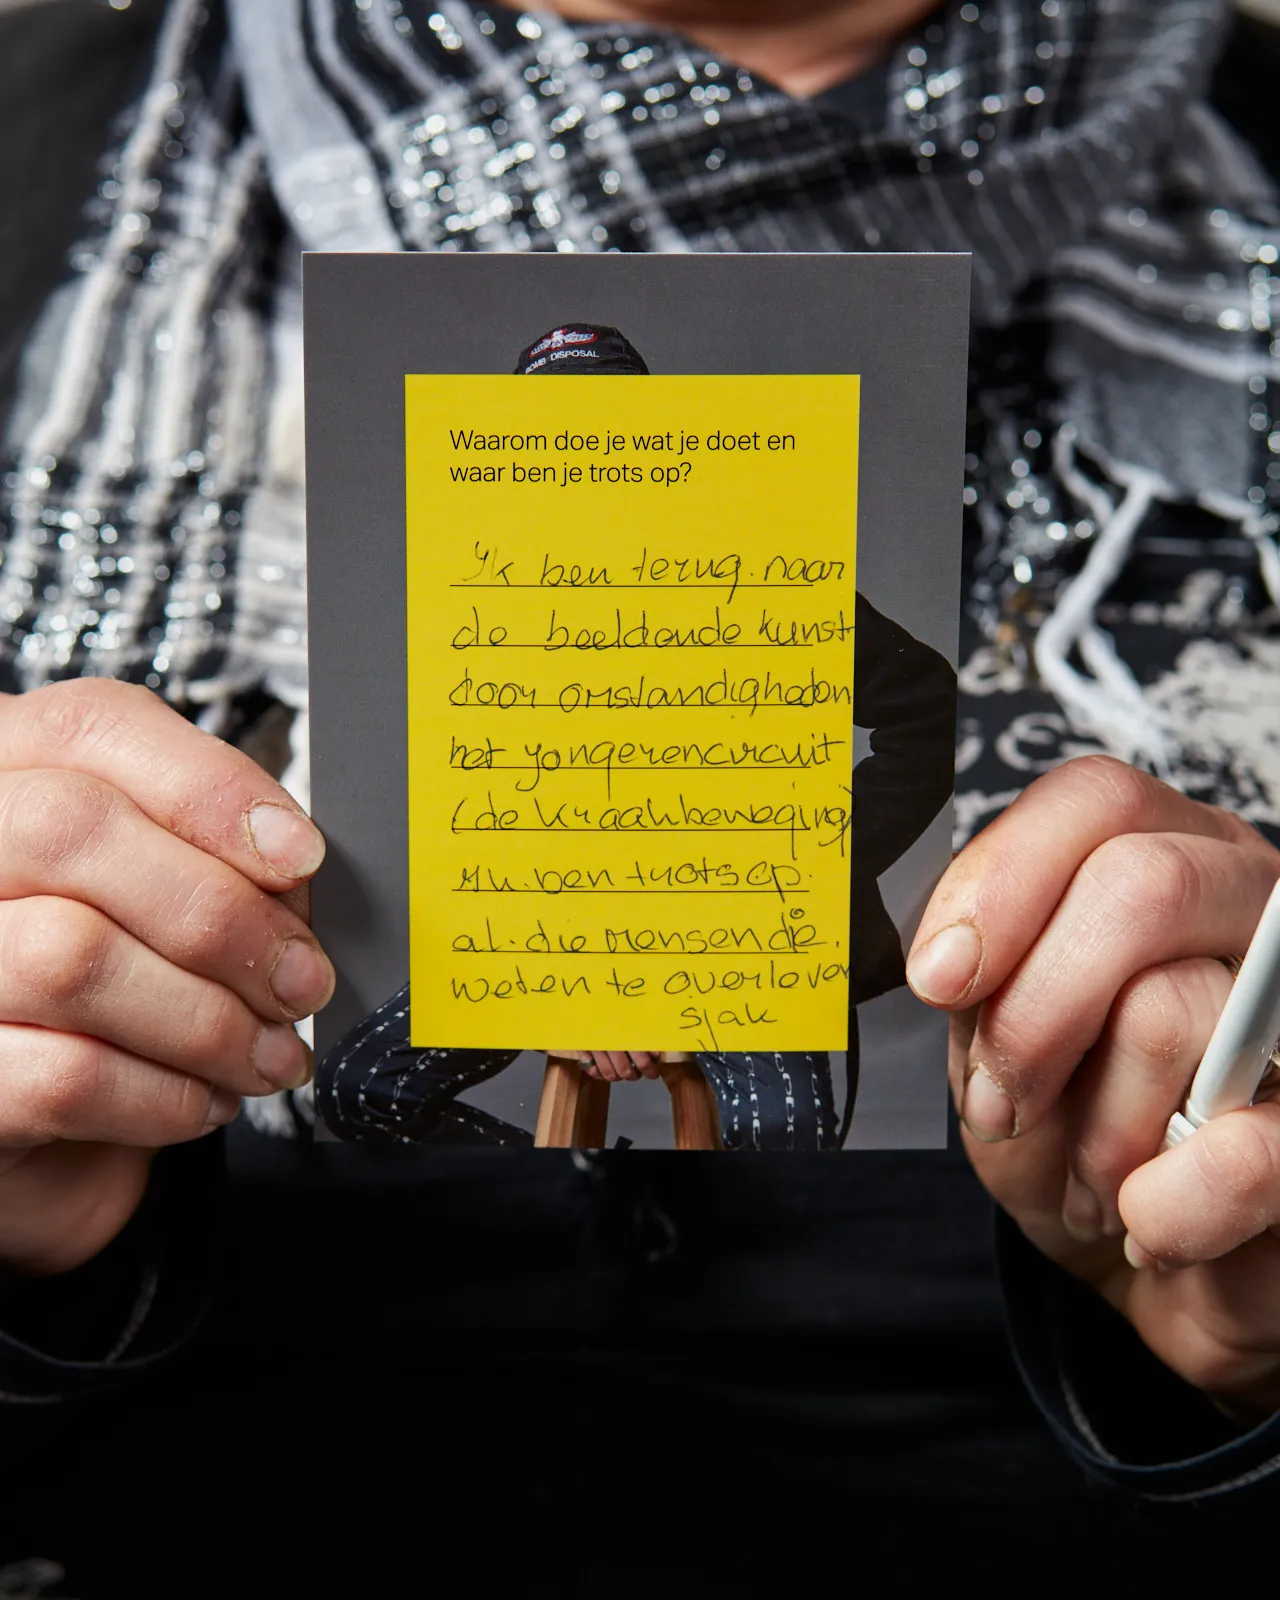 BOMB DISPOSAL
Waarom doe je wat je doet en
waar ben je trots op?
Ik ben terug. naar
de beeldende kunst
door omstandigheden
het jongerencircuit
(de kraakbeweging)
ben trots op.
al. die mensen die.
weten te overleven
sjak